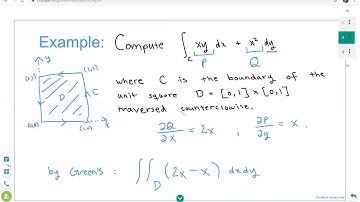 Example: Compute ∫_C xy dx + x² dy
P Q
where C is the boundary of the
unit square D = [0,1] × [0,1]
traversed counterclockwise.
y
(0,1) (1,1)
D C
(0,0) (1,0) x
∂Q/∂x = 2x , ∂P/∂y = x .
by Green's : ∬_D (2x-x) dxdy